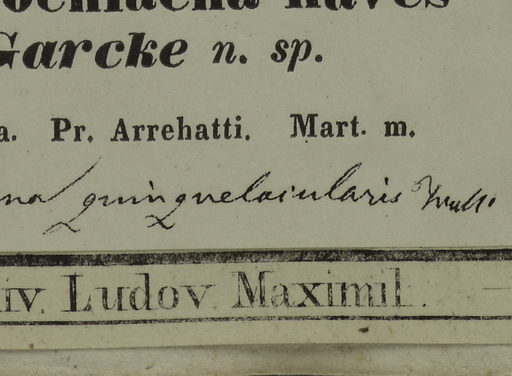 ochlaena flaves
Garcke n. sp.
a. Pr. Arrehatti. Mart. m.
na quinquelocularis
iv. Ludov. Maximil.